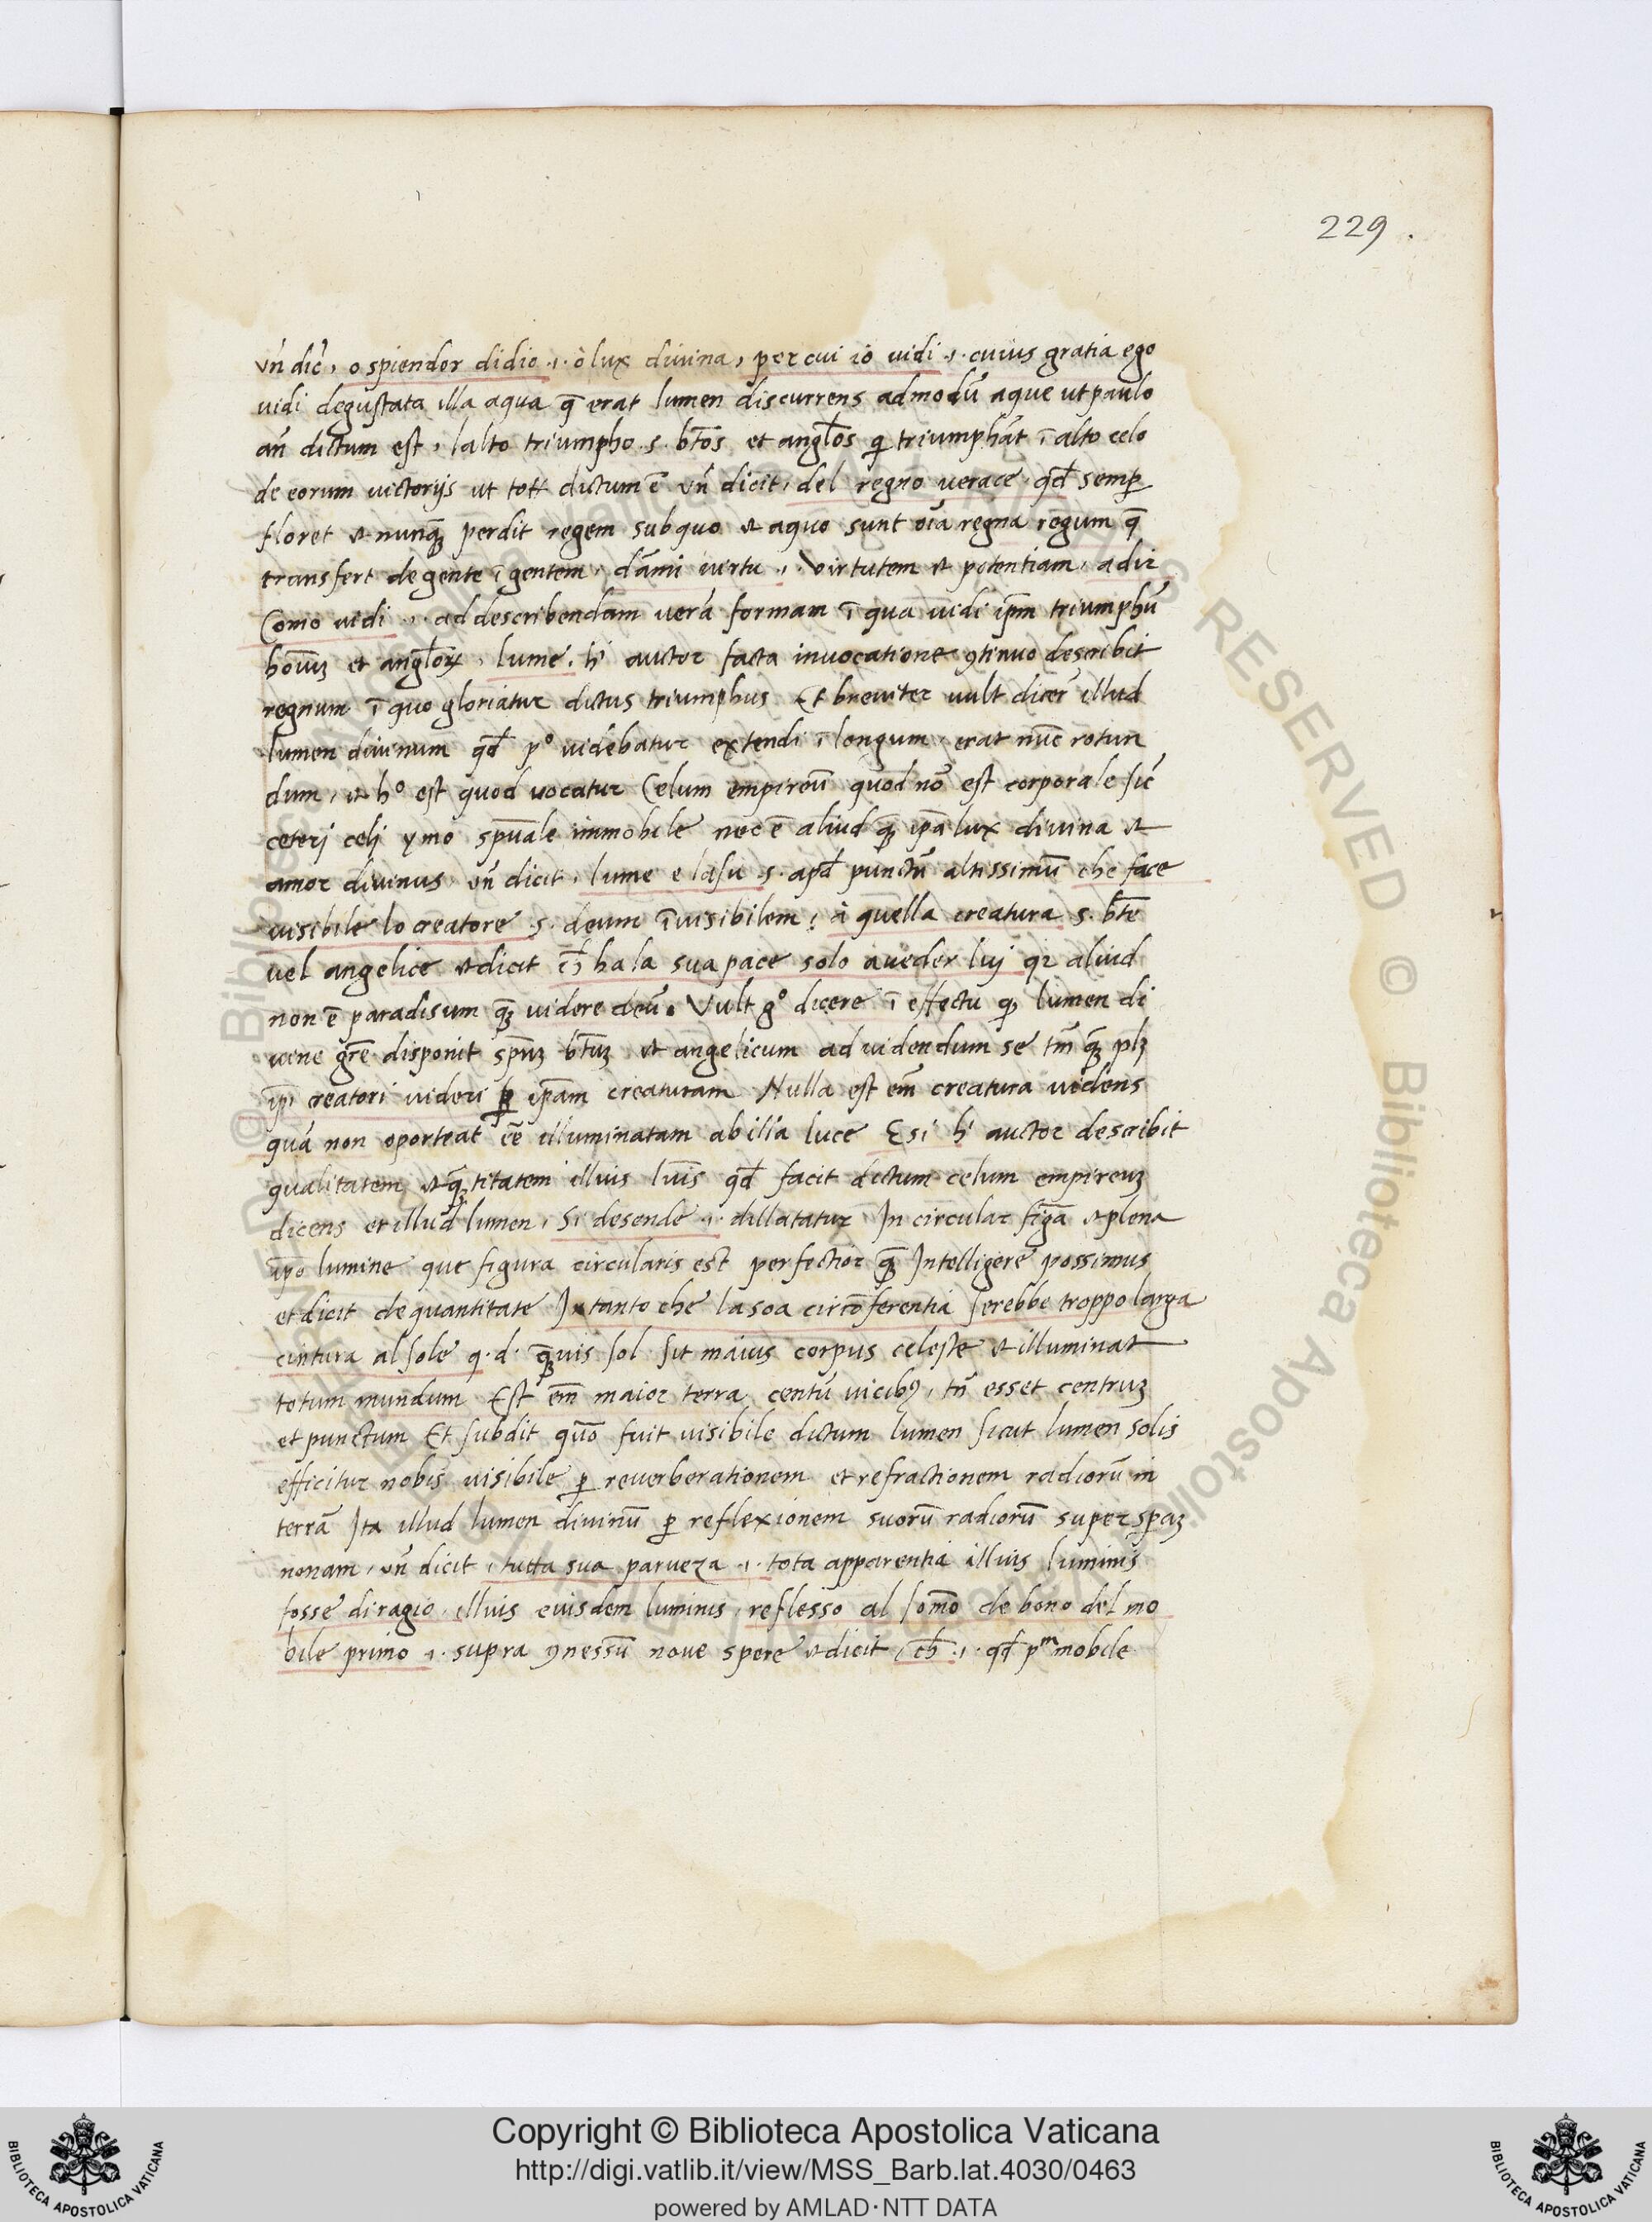 229 .
vn̄ dic̄, o spiendor didio .ı. ò lux diuina, per cui io uidi .ı. cuius gratia ego
uidi degustata illa aqua q̄ erat lumen discurrens admodū aque ut paulo
an̄ dictum est, lalto triumpho .s. btōs et anglōs qi triumphāt ī alto celo
de eorum uictorijs ut tott dictum ē vn̄ dicit, del regno uerace qd̄ semp
floret et nunq̄ꝫ perdit regem subquo et aquo sunt oīa regna regum q̄
transfert de gente ī gentem, dāmi uirtu .ı. virtutem et potentiam, adir
Como uidi .ı. ad describendam uerā formam ī qua uidi ip̄m triumphū
hoīuꝫ et anglōrꝝ, lume. hi auctor facta inuocatione ꝯtinuo describit
regnum ī quo gloriatur dictus triumphus Et breuiter uult dicer̄ illud
lumen diuinum qd̄ pº uidebatur extendi ī longum, erat nūc rotun
dum, et hº est quod uocatur Celum empireū quod nō est corporale sic̄
ceterj celj ymo spūale immobile nec ē aliud q̄ꝫ ip̄a lux diuina et
amor diuinus vn̄ dicit, lume e lasu .s. apd̄ punctū altissimū che face
uisibile lo creatore .s. deum īuisibilem, à quella creatura .s. btē
uel angelice et dicit ch̄ ha la sua pace solo aueder luj qz aliud
non ē paradisum q̄ꝫ uidere deū. Vult gº dicere ī effectu qꝫ lumen di
uine grē disponit spm̄ btūꝫ et angelicum ad uidendum se tm̄ q̄ꝫ plꝫ
ip̄i creatori uideri ꝑ ip̄am creaturam Nulla est em̄ creatura uidens
quā non oporteat eē illuminatam ab illa luce E si hi auctor describit
qualitatem et q̄ꝫtitatem illuis luīs qd̄ facit dictum celum empireuꝫ
dicens et illud lumen, Si desende .ı. dillatatur In circular figā et plena
ipo lumine que figura circularis est perfectior q̄ꝫ Intelligere possimus
et dicit de quantitate In tanto che la soa circōferentia serebbe troppo larga
cintura al sole q. d. q̄ꝫuis sol sit maius corpus celeste et illuminat
totum mundum Est em̄ maior terra centū uicibꝰ, tn̄ esset centruꝫ
et punctum Et subdit quō fuit uisibile dictum lumen sicut lumen solis
efficitur nobis uisibile ꝑ reuerberationem et refractionem radiorū in
terrā Ita illud lumen diuinū ꝑ reflexionem suorū radiorū super spaꝫ
nonam, vn̄ dicit, tutta sua parueza .ı. tota apparentia illuis luminis
fosse di ragio illuis eiusdem luminis, reflesso al somō de bono del mo
bile primo .ı. supra ꝯnessū noue spere et dicit, ch̄ .ı. qd̄ pm mobile
Copyright © Biblioteca Apostolica Vaticana
http://digi.vatlib.it/view/MSS_Barb.lat.4030/0463
powered by AMLAD·NTT DATA
BIBLIOTECA APOSTOLICA VATICANA
BIBLIOTECA APOSTOLICA VATICANA